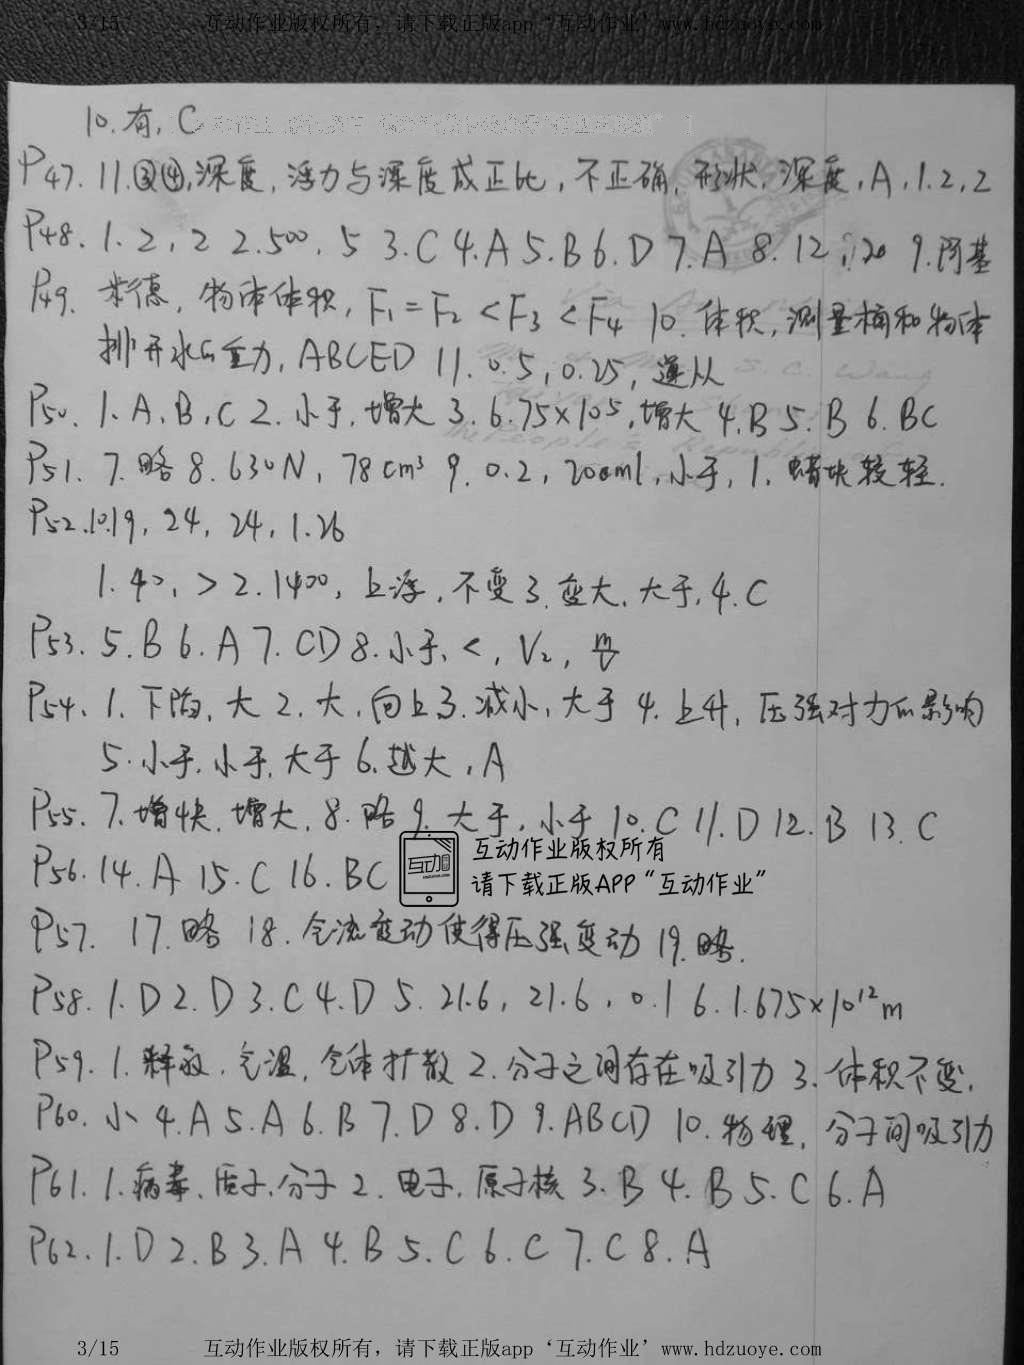 3/15 互动作业版权所有，请下载正版app‘互动作业’www.hdzuoye.com
10.有, C
P47. 11.③④,深度, 浮力与深度成正比, 不正确, 形状, 深度, A, 1.2, 2
P48. 1. 2, 2 2.500, 5 3.C 4.A 5.B 6.D 7.A 8. 12, 20 9.阿基
P49. 米德, 物体体积, F₁=F₂<F₃<F₄ 10. 体积, 测量桶和物体
排开水的重力, ABCED 11. 0.5, 0.25, 遵从
P50. 1.A,B,C 2.小于,增大 3. 6.75×10⁵,增大 4.B 5.B 6.BC
P51. 7.略 8.630N, 78cm³ 9. 0.2, 200ml,小于, 1, 蜡块较轻.
P52.10.19, 24, 24, 1.26
1. 40, > 2.1400, 上浮, 不变 3.变大, 大于, 4.C
P53. 5.B 6.A 7.CD 8.小于, <, V₂,
P54. 1.下陷, 大 2.大, 向上 3.减小,大于 4.上升, 压强对力的影响
5.小于,小于,大于 6.越大, A
P55. 7.增快,增大, 8.略 9.大于, 小于 10.C 11.D 12.B 13.C
P56.14.A 15.C 16.BC
互动
互动作业版权所有
请下载正版APP“互动作业”
P57. 17.略 18.气流变动使得压强变动 19.略.
P58.1.D 2.D 3.C 4.D 5. 21.6, 21.6, 0.1 6. 1.675×10¹²m
P59. 1.释放, 气温, 气体扩散 2.分子之间存在吸引力 3.体积不变,
P60. 小 4.A 5.A 6.B 7.D 8.D 9.ABCD 10.物理, 分子间吸引力
P61. 1.病毒, 质子,分子 2.电子, 原子核 3.B 4.B 5.C 6.A
P62.1.D 2.B 3.A 4.B 5.C 6.C 7.C 8.A
3/15 互动作业版权所有，请下载正版app‘互动作业’www.hdzuoye.com